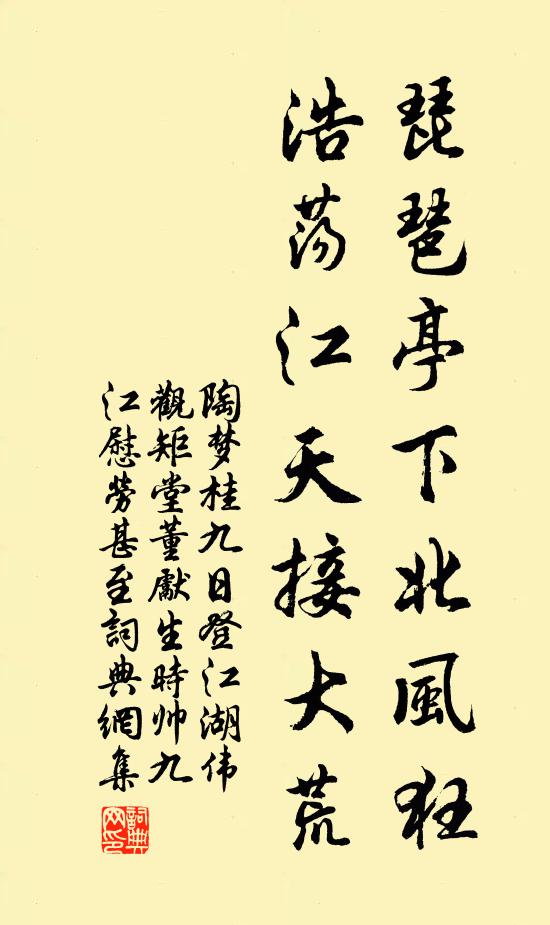 琵琶亭下北風狂
浩荡江天接大荒
陶梦桂九日登江湖伟
觀矩堂董獻生時帅九
江慰勞甚至詞典網集
詞典网印